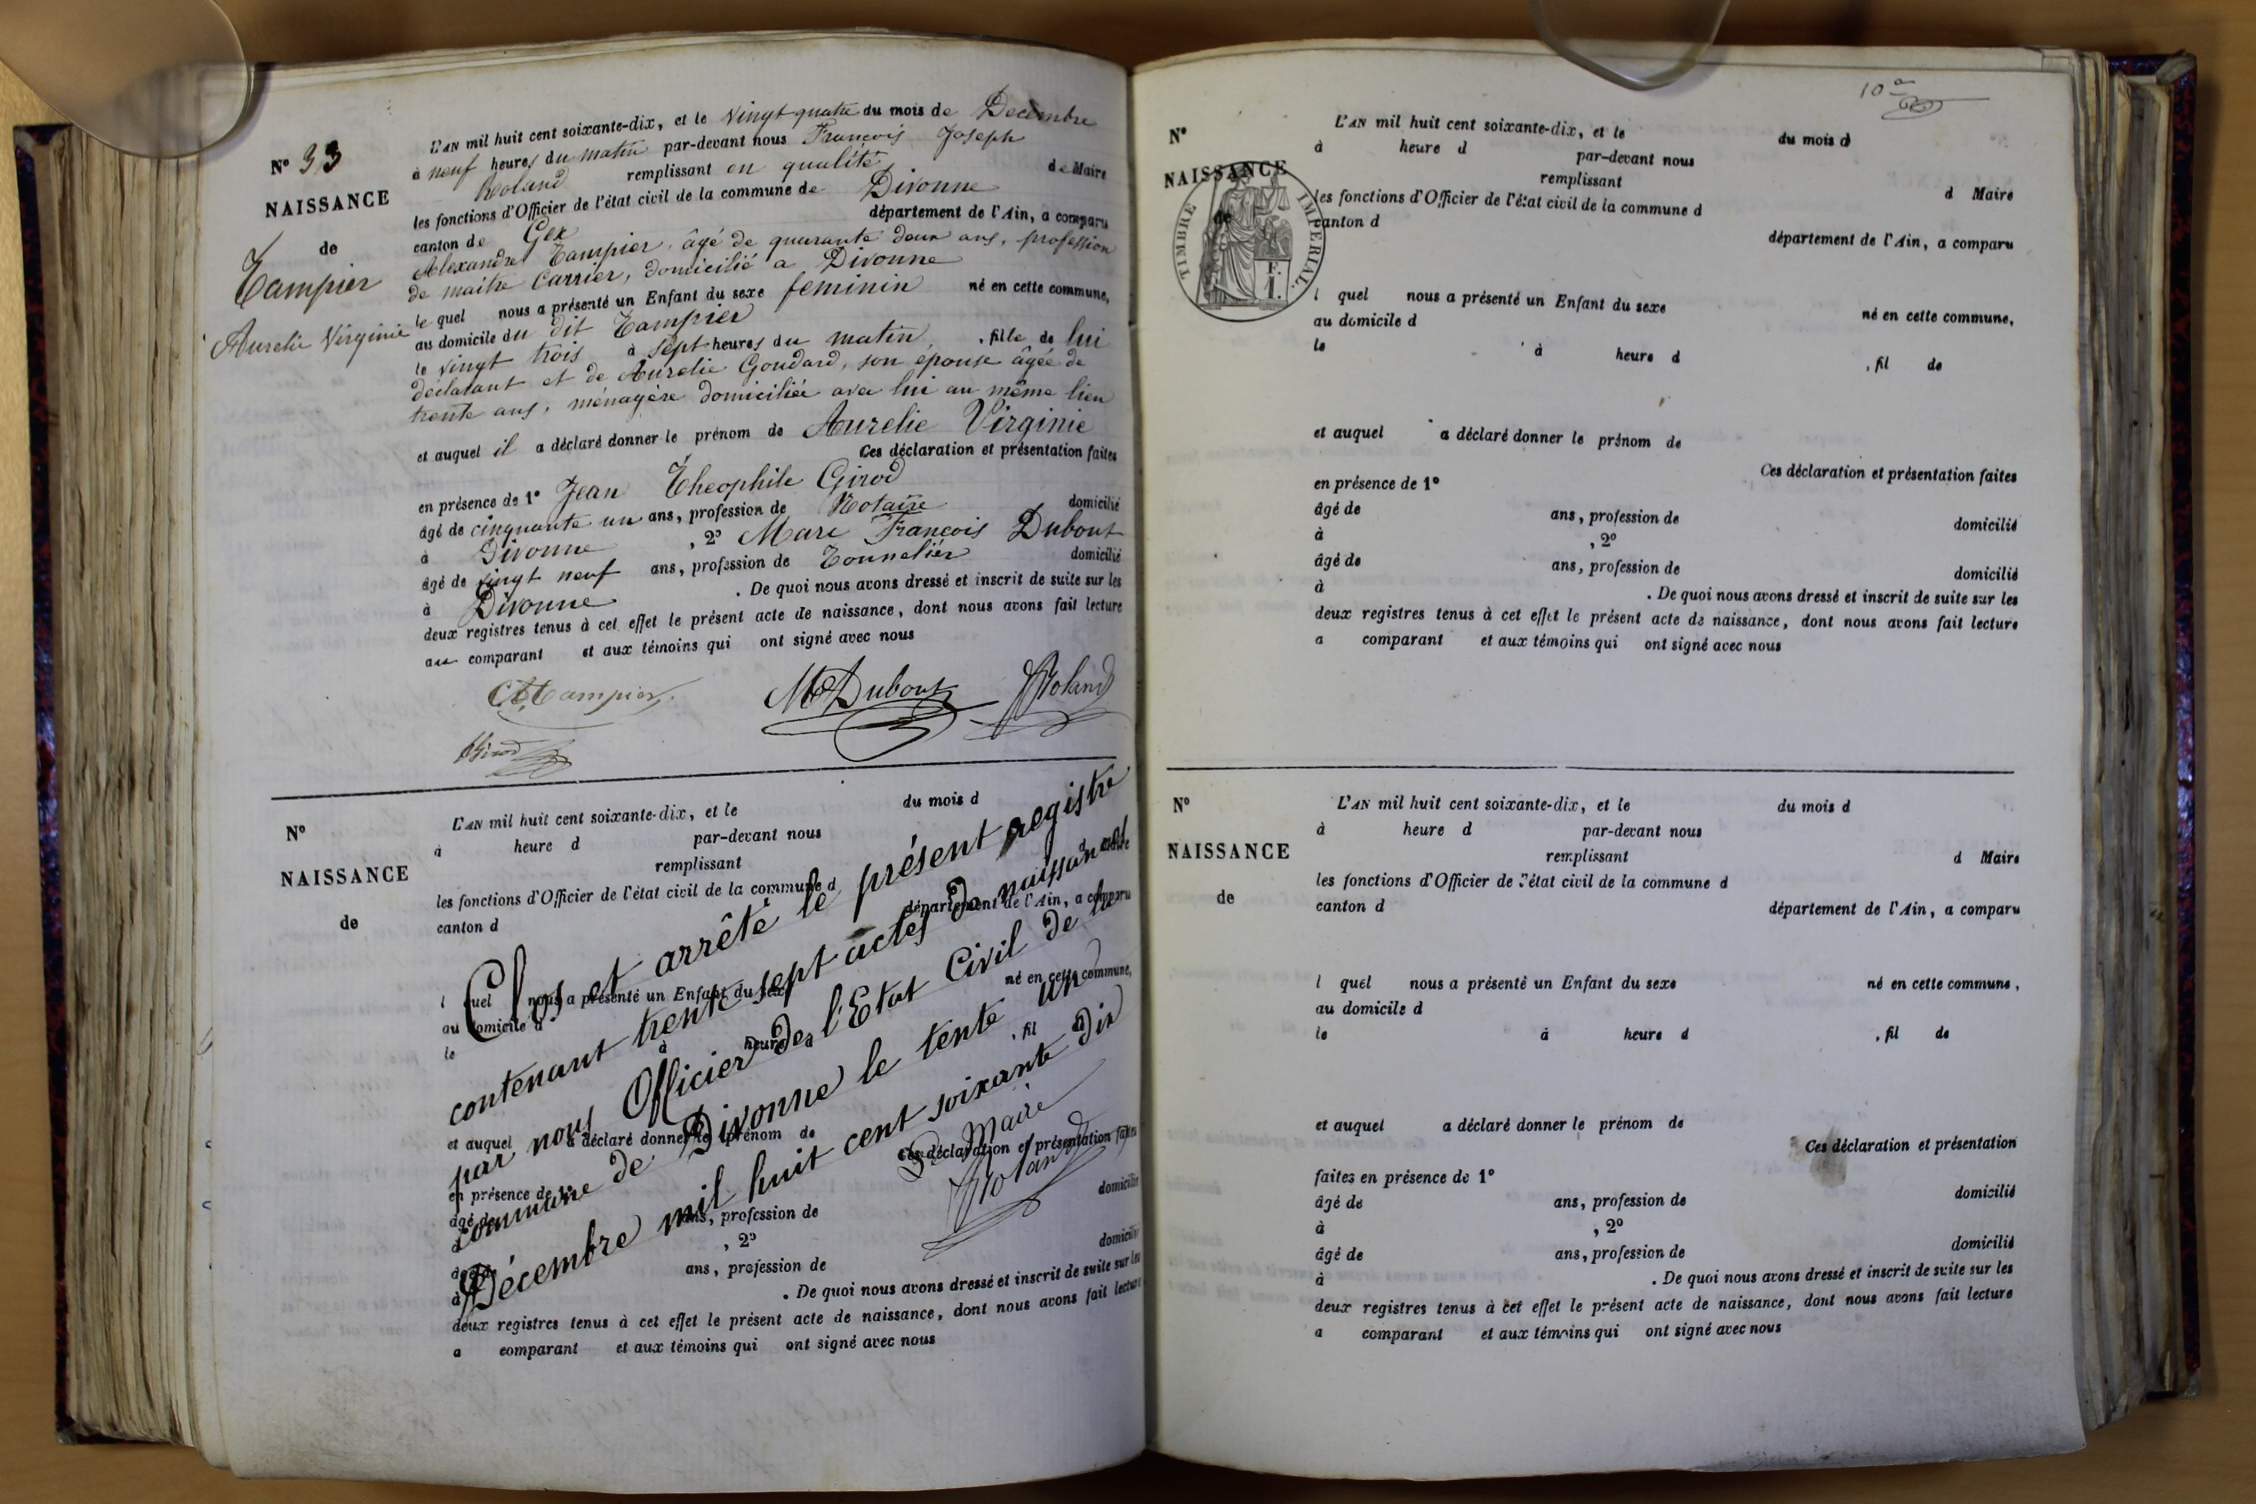 N° 33
NAISSANCE
de
Tampier
Aurelie Virginie
L'AN mil huit cent soixante-dix, et le vingt quatre du mois de Decembre
à neuf heures du matin par-devant nous François Joseph
Roland remplissant en qualité de Maire
les fonctions d'Officier de l'état civil de la commune de Divonne
canton de Gex département de l'Ain, a comparu
Alexandre Tampier, âgé de quarante deux ans, profession
de maitre Carrier, domicilié a Divonne
le quel nous a présenté un Enfant du sexe feminin né en cette commune,
au domicile du dit Tampier
le vingt trois à sept heures du matin, fille de lui
déclarant et de Aurelie Goudard, son epouse âgée de
trente ans, ménagère domiciliée avec lui au même lieu
et auquel il a déclaré donner le prénom de Aurelie Virginie
Ces déclaration et présentation faites
en présence de 1° Jean Théophile Girod
âgé de cinquante un ans, profession de Notaire domicilié
à Divonne, 2° Marc François Dubout
âgé de vingt neuf ans, profession de Tonnelier domicilié
à Divonne. De quoi nous avons dressé et inscrit de suite sur les
deux registres tenus à cet effet le présent acte de naissance, dont nous avons fait lecture
au comparant et aux témoins qui ont signé avec nous
Tampier MDubout Roland
Girod
N°
NAISSANCE
de
L'AN mil huit cent soixante-dix, et le du mois d
à heure d par-devant nous
remplissant
les fonctions d'Officier de l'état civil de la commune d
canton d département de l'Ain, a comparu
l quel nous a présenté un Enfant du sexe né en cette commune,
au domicile d
le à heure d , fil de
et auquel a déclaré donner le prénom de
Ces déclaration et présentation faites
en présence de 1°
âgé de ans, profession de domicilié
à , 2°
âgé de ans, profession de domicilié
à . De quoi nous avons dressé et inscrit de suite sur les
deux registres tenus à cet effet le présent acte de naissance, dont nous avons fait lecture
a comparant et aux témoins qui ont signé avec nous
Clos et arrêté le présent registre
contenant trente sept actes de naissance
par nous Officier de l'Etat Civil de la
commune de Divonne le tente un
Décembre mil huit cent soixante dix
Maire
Roland
10
N°
NAISSANCE
de
TIMBRE IMPERIAL.
F.
1.
L'AN mil huit cent soixante-dix, et le du mois d
à heure d par-devant nous
remplissant d Maire
les fonctions d'Officier de l'état civil de la commune d
canton d département de l'Ain, a comparu
l quel nous a présenté un Enfant du sexe né en cette commune,
au domicile d
le à heure d , fil de
et auquel a déclaré donner le prénom de
Ces déclaration et présentation faites
en présence de 1°
âgé de ans, profession de domicilié
à , 2°
âgé de ans, profession de domicilié
à . De quoi nous avons dressé et inscrit de suite sur les
deux registres tenus à cet effet le présent acte de naissance, dont nous avons fait lecture
a comparant et aux témoins qui ont signé avec nous
N°
NAISSANCE
de
L'AN mil huit cent soixante-dix, et le du mois d
à heure d par-devant nous
remplissant d Maire
les fonctions d'Officier de l'état civil de la commune d
canton d département de l'Ain, a comparu
l quel nous a présenté un Enfant du sexe né en cette commune,
au domicile d
le à heure d , fil de
et auquel a déclaré donner le prénom de
Ces déclaration et présentation
faites en présence de 1°
âgé de ans, profession de domicilié
à , 2°
âgé de ans, profession de domicilié
à . De quoi nous avons dressé et inscrit de suite sur les
deux registres tenus à cet effet le présent acte de naissance, dont nous avons fait lecture
a comparant et aux témoins qui ont signé avec nous